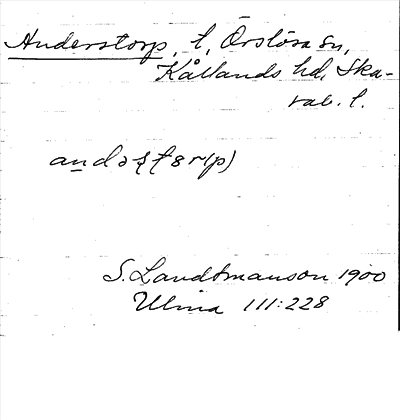 Anderstorp, l, Örslösa sn,
Kållands hd, Ska-
rab. l.
andəʂʈɵr(p)
S. Landtmanson 1900
Ulma 111:228